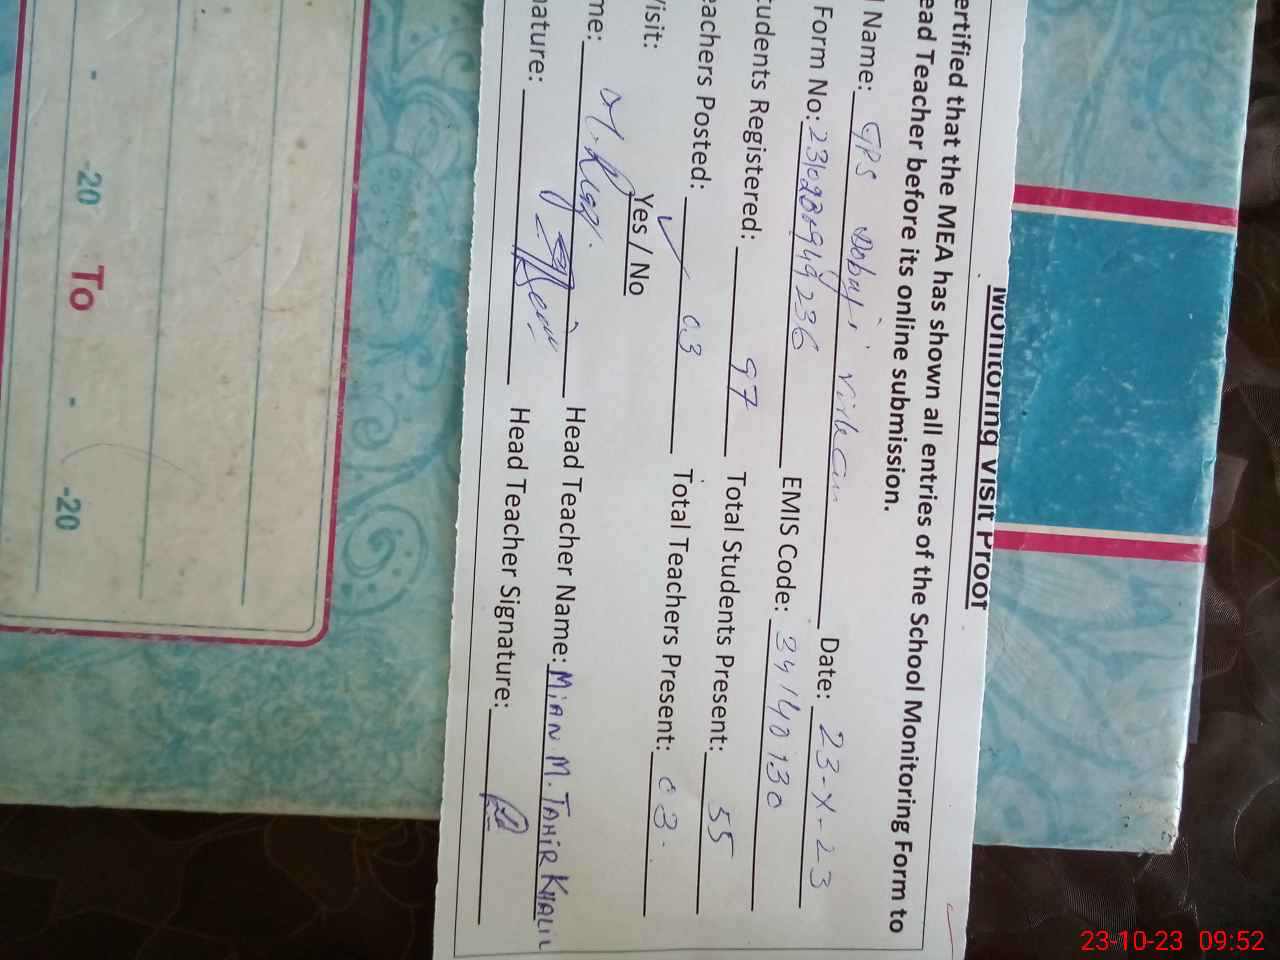 Monitoring Visit Proof
ertified that the MEA has shown all entries of the School Monitoring Form to
ead Teacher before its online submission.
l Name: GPS Date: 23-X-23
Form No: EMIS Code: 34140130
tudents Registered: 97 Total Students Present: 55
eachers Posted: 03 Total Teachers Present: 03
Visit: Yes / No
me: M. Head Teacher Name: MIAN M. TAHIR KHALIL
nature: Head Teacher Signature:
- -20 To - -20
23-10-23 09:52